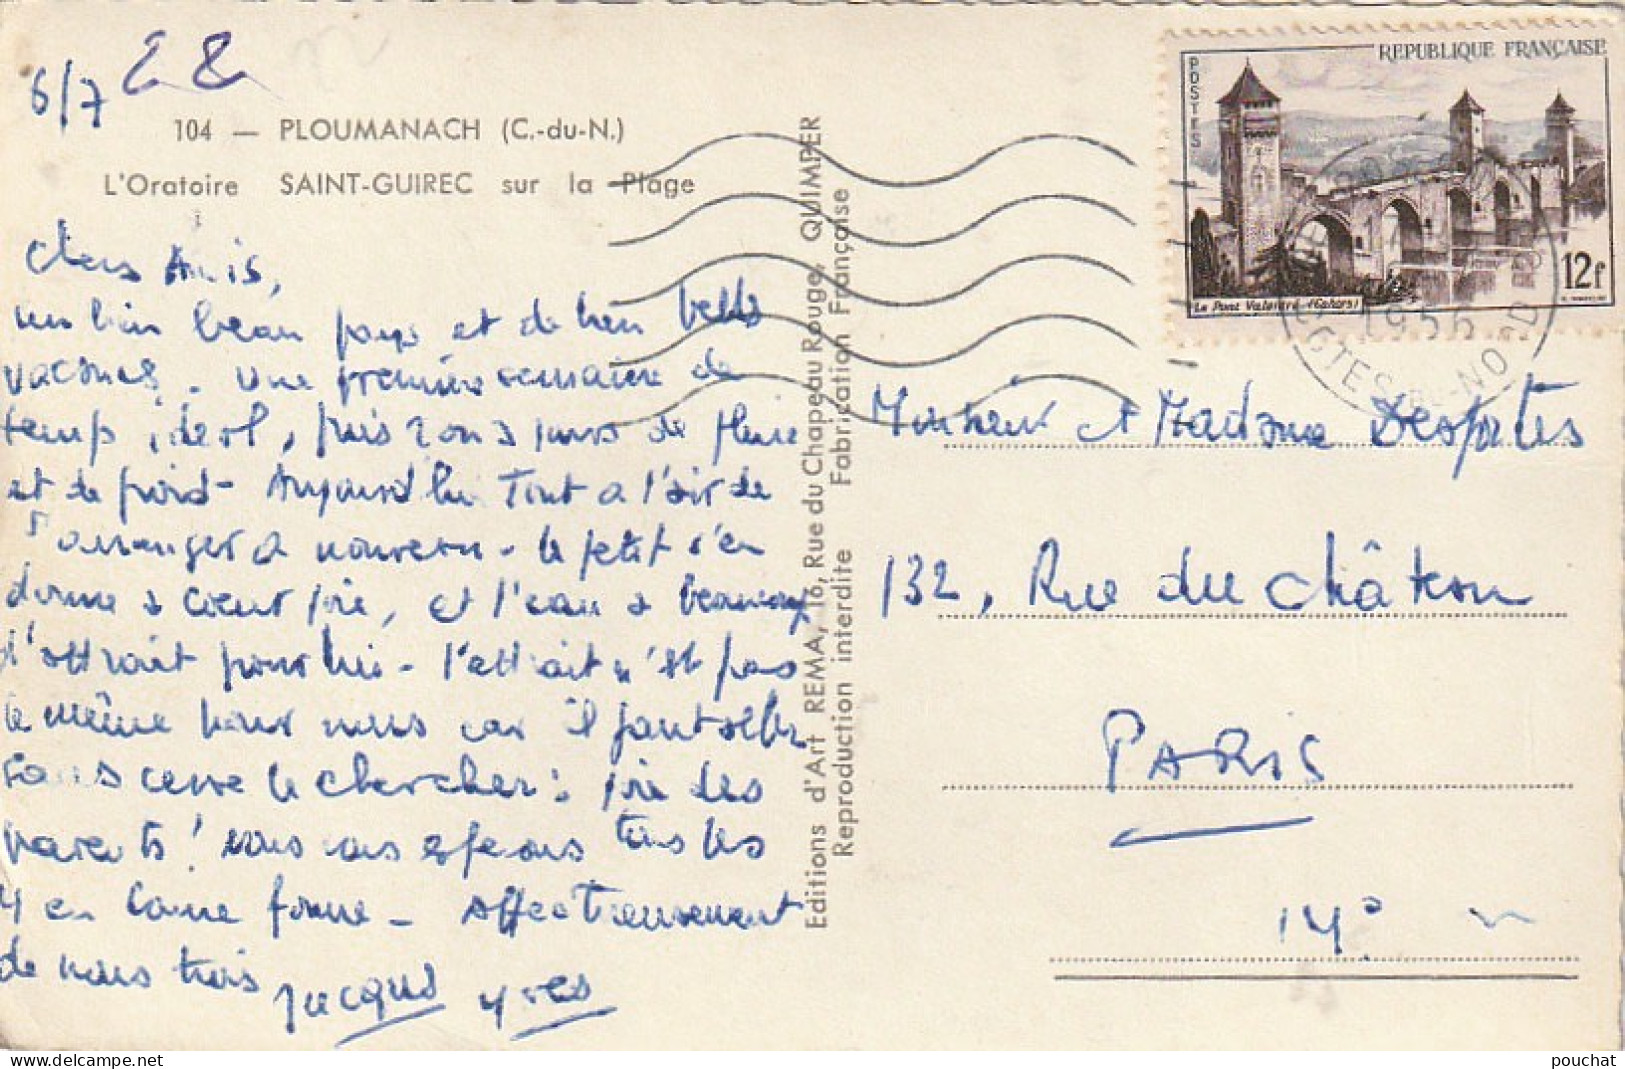 6/7
104 — PLOUMANACH (C.-du-N.)
L'Oratoire SAINT-GUIREC sur la Plage
Chers Amis,
un bien beau pays et de bien belles
vacances. Une première semaine de
temps idéal, puis 2 ou 3 jours de pluie
et de froid - Aujourd'hui Tout a l'air de
s'arranger à nouveau - le petit s'en
donne à cœur joie, et l'eau a beaucoup
d'attrait pour lui - l'attrait n'est pas
le même pour nous car il faut aller
sans cesse le chercher : joie des
parents ! nous vous espérons tous les
4 en bonne forme - affectueusement
de nous trois Jacques Yves
Editions d'Art REMA, 16, Rue du Chapeau Rouge, QUIMPER
Reproduction interdite Fabrication Française
REPUBLIQUE FRANÇAISE
POSTES
Le Pont Valentré (Cahors)
12f
1956
COTES-DU-NORD
Monsieur et Madame Desportes
132, Rue du Château
PARIS
14°
pouchat